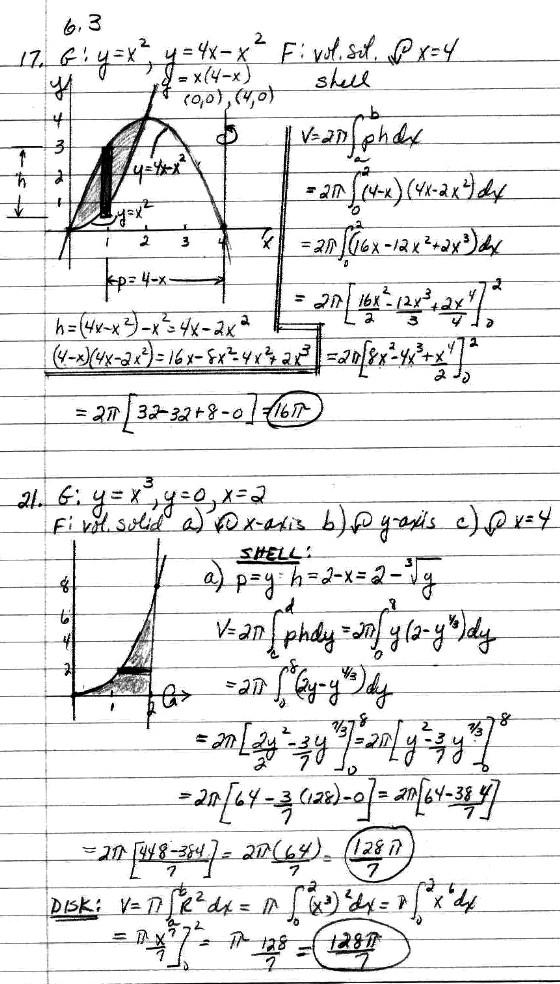 6.3
17. G: y = x², y = 4x - x² F: vol. sol. ↻ x = 4
y = x(4-x) shell
(0,0), (4,0)
y
4
3
2
1
h
y = 4x-x²
y = x²
1 2 3 4 x
p = 4-x
V = 2π ∫_a^b ph dx
= 2π ∫_0^2 (4-x)(4x-2x²) dx
= 2π ∫_0^2 (16x - 12x² + 2x³) dx
= 2π [16x²/2 - 12x³/3 + 2x⁴/4]_0^2
h = (4x-x²) - x² = 4x - 2x²
(4-x)(4x-2x²) = 16x - 8x² - 4x² + 2x³
= 2π [8x² - 4x³ + x⁴/2]_0^2
= 2π [32 - 32 + 8 - 0] = 16π
21. G: y = x³, y = 0, x = 2
F: vol. solid a) ↻ x-axis b) ↻ y-axis c) ↻ x = 4
SHELL:
8
6
4
2
1 2
a) p = y h = 2-x = 2 - ∛y
V = 2π ∫_c^d ph dy = 2π ∫_0^8 y(2 - y^1/3) dy
= 2π ∫_0^8 (2y - y^4/3) dy
= 2π [2y²/2 - 3/7 y^7/3]_0^8 = 2π [y² - 3/7 y^7/3]_0^8
= 2π [64 - 3/7 (128) - 0] = 2π [64 - 384/7]
= 2π [448-384/7] = 2π (64/7) = 128π/7
DISK: V = π ∫_a^b R² dx = π ∫_0^2 (x³)² dx = π ∫_0^2 x⁶ dx
= π x⁷/7]_0^2 = π 128/7 = 128π/7